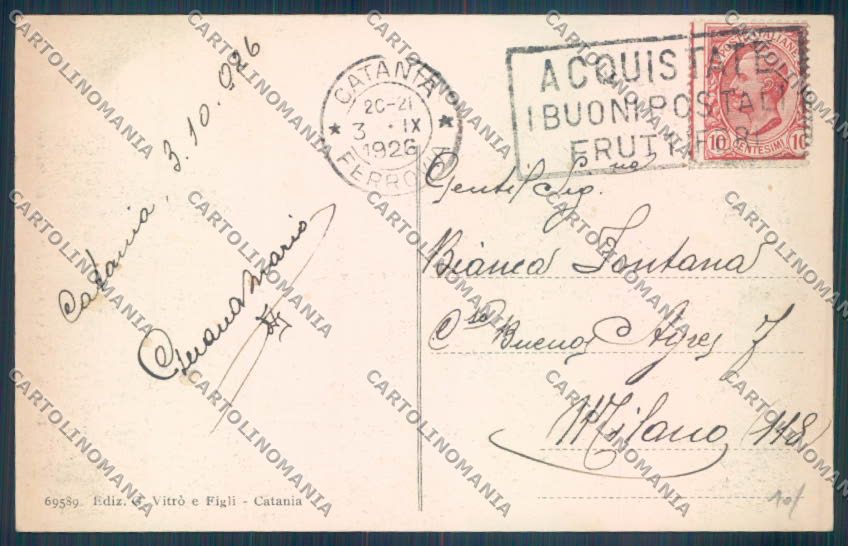 CATANIA
20-21
3 · IX
1926
FERROVIA
ACQUISTATE
I BUONI POSTALI
FRUTTIFERI
POSTE ITALIANE
10 CENTESIMI 10
Catania, 3.10.926
Mario
Gentil Sig.na
Bianca Fontana
C.so Buenos Ayres 7
Milano (118)
69589 Ediz. G. Vitrò e Figli - Catania
CARTOLINOMANIA